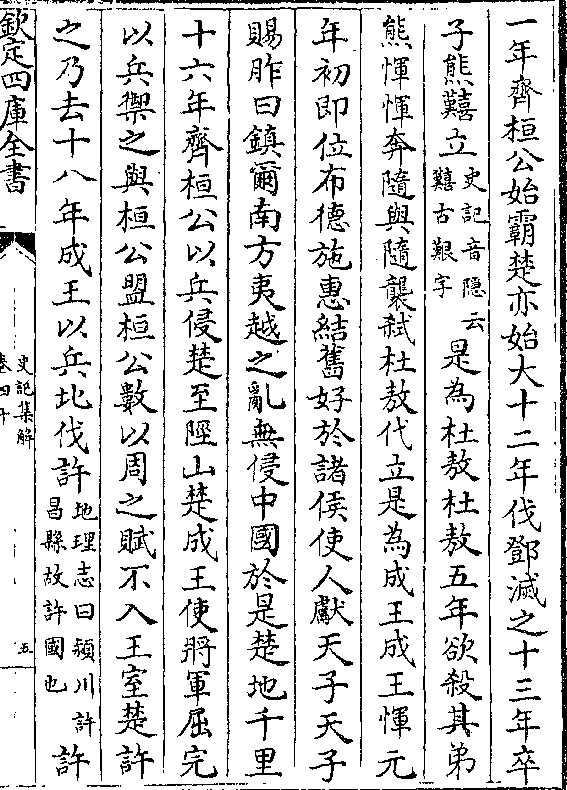 一年齊桓公始霸楚亦始大十二年伐鄧滅之十三年卒
子熊囏立史記音隱云囏古艱字是為杜敖杜敖五年欲殺其弟
熊惲惲奔隨與隨襲弒杜敖代立是為成王成王惲元
年初即位布德施惠結舊好於諸侯使人獻天子天子
賜胙曰鎮爾南方夷越之亂無侵中國於是楚地千里
十六年齊桓公以兵侵楚至陘山楚成王使將軍屈完
以兵禦之與桓公盟桓公數以周之賦不入王室楚許
之乃去十八年成王以兵北伐許地理志曰潁川許昌縣故許國也許
欽定四庫全書
史記集解
卷四十
五